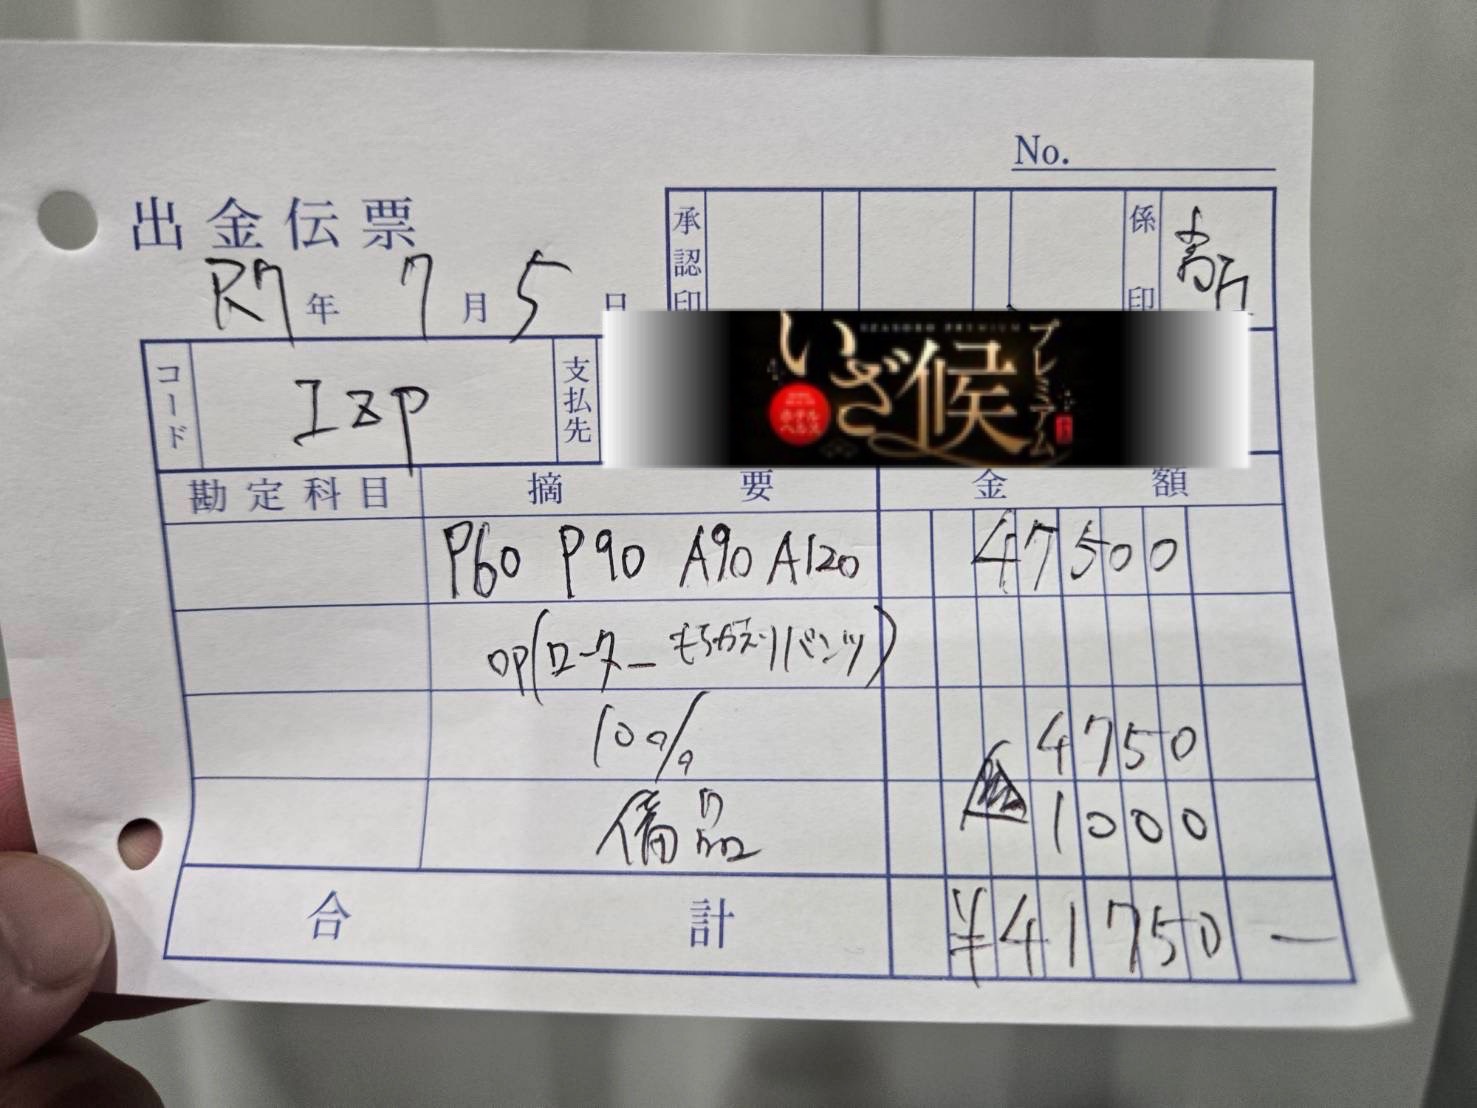 No.
出金伝票
承認印
係印
R7年 7月 5日
コード Izp 支払先
SEASONED PREMIUM
いざ候
プレミアム
ホテルヘルス
勘定科目 摘要 金額
P60 P90 A90 A120 47500
OP(ローター もちかえりパンツ)
10% 4750
備品 1000
合計 ¥41750−